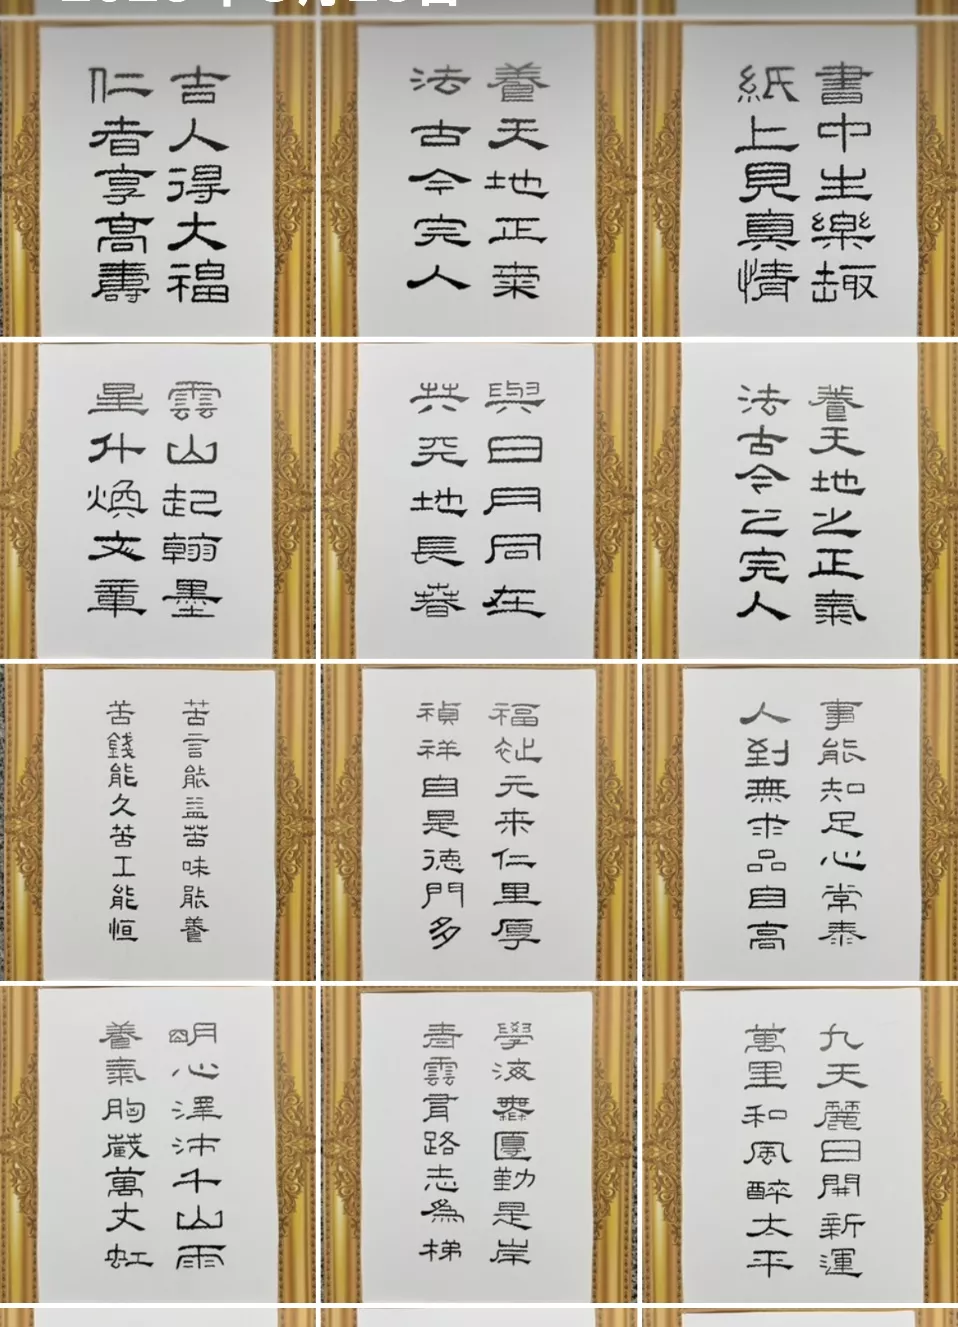 吉人得大福
仁者享高壽
養天地正氣
法古今完人
書中生樂趣
紙上見真情
雲山起翰墨
星斗煥文章
與日月同在
共天地長春
養天地之正氣
法古今之完人
苦言能益苦味能養
苦錢能久苦工能恒
福祉元来仁里厚
禎祥自是德門多
事能知足心常泰
人到無求品自高
明心澤沛千山雨
養氣胸藏萬丈虹
學海無勤是岸
青雲有路志為梯
九天麗日開新運
萬里和風醉太平